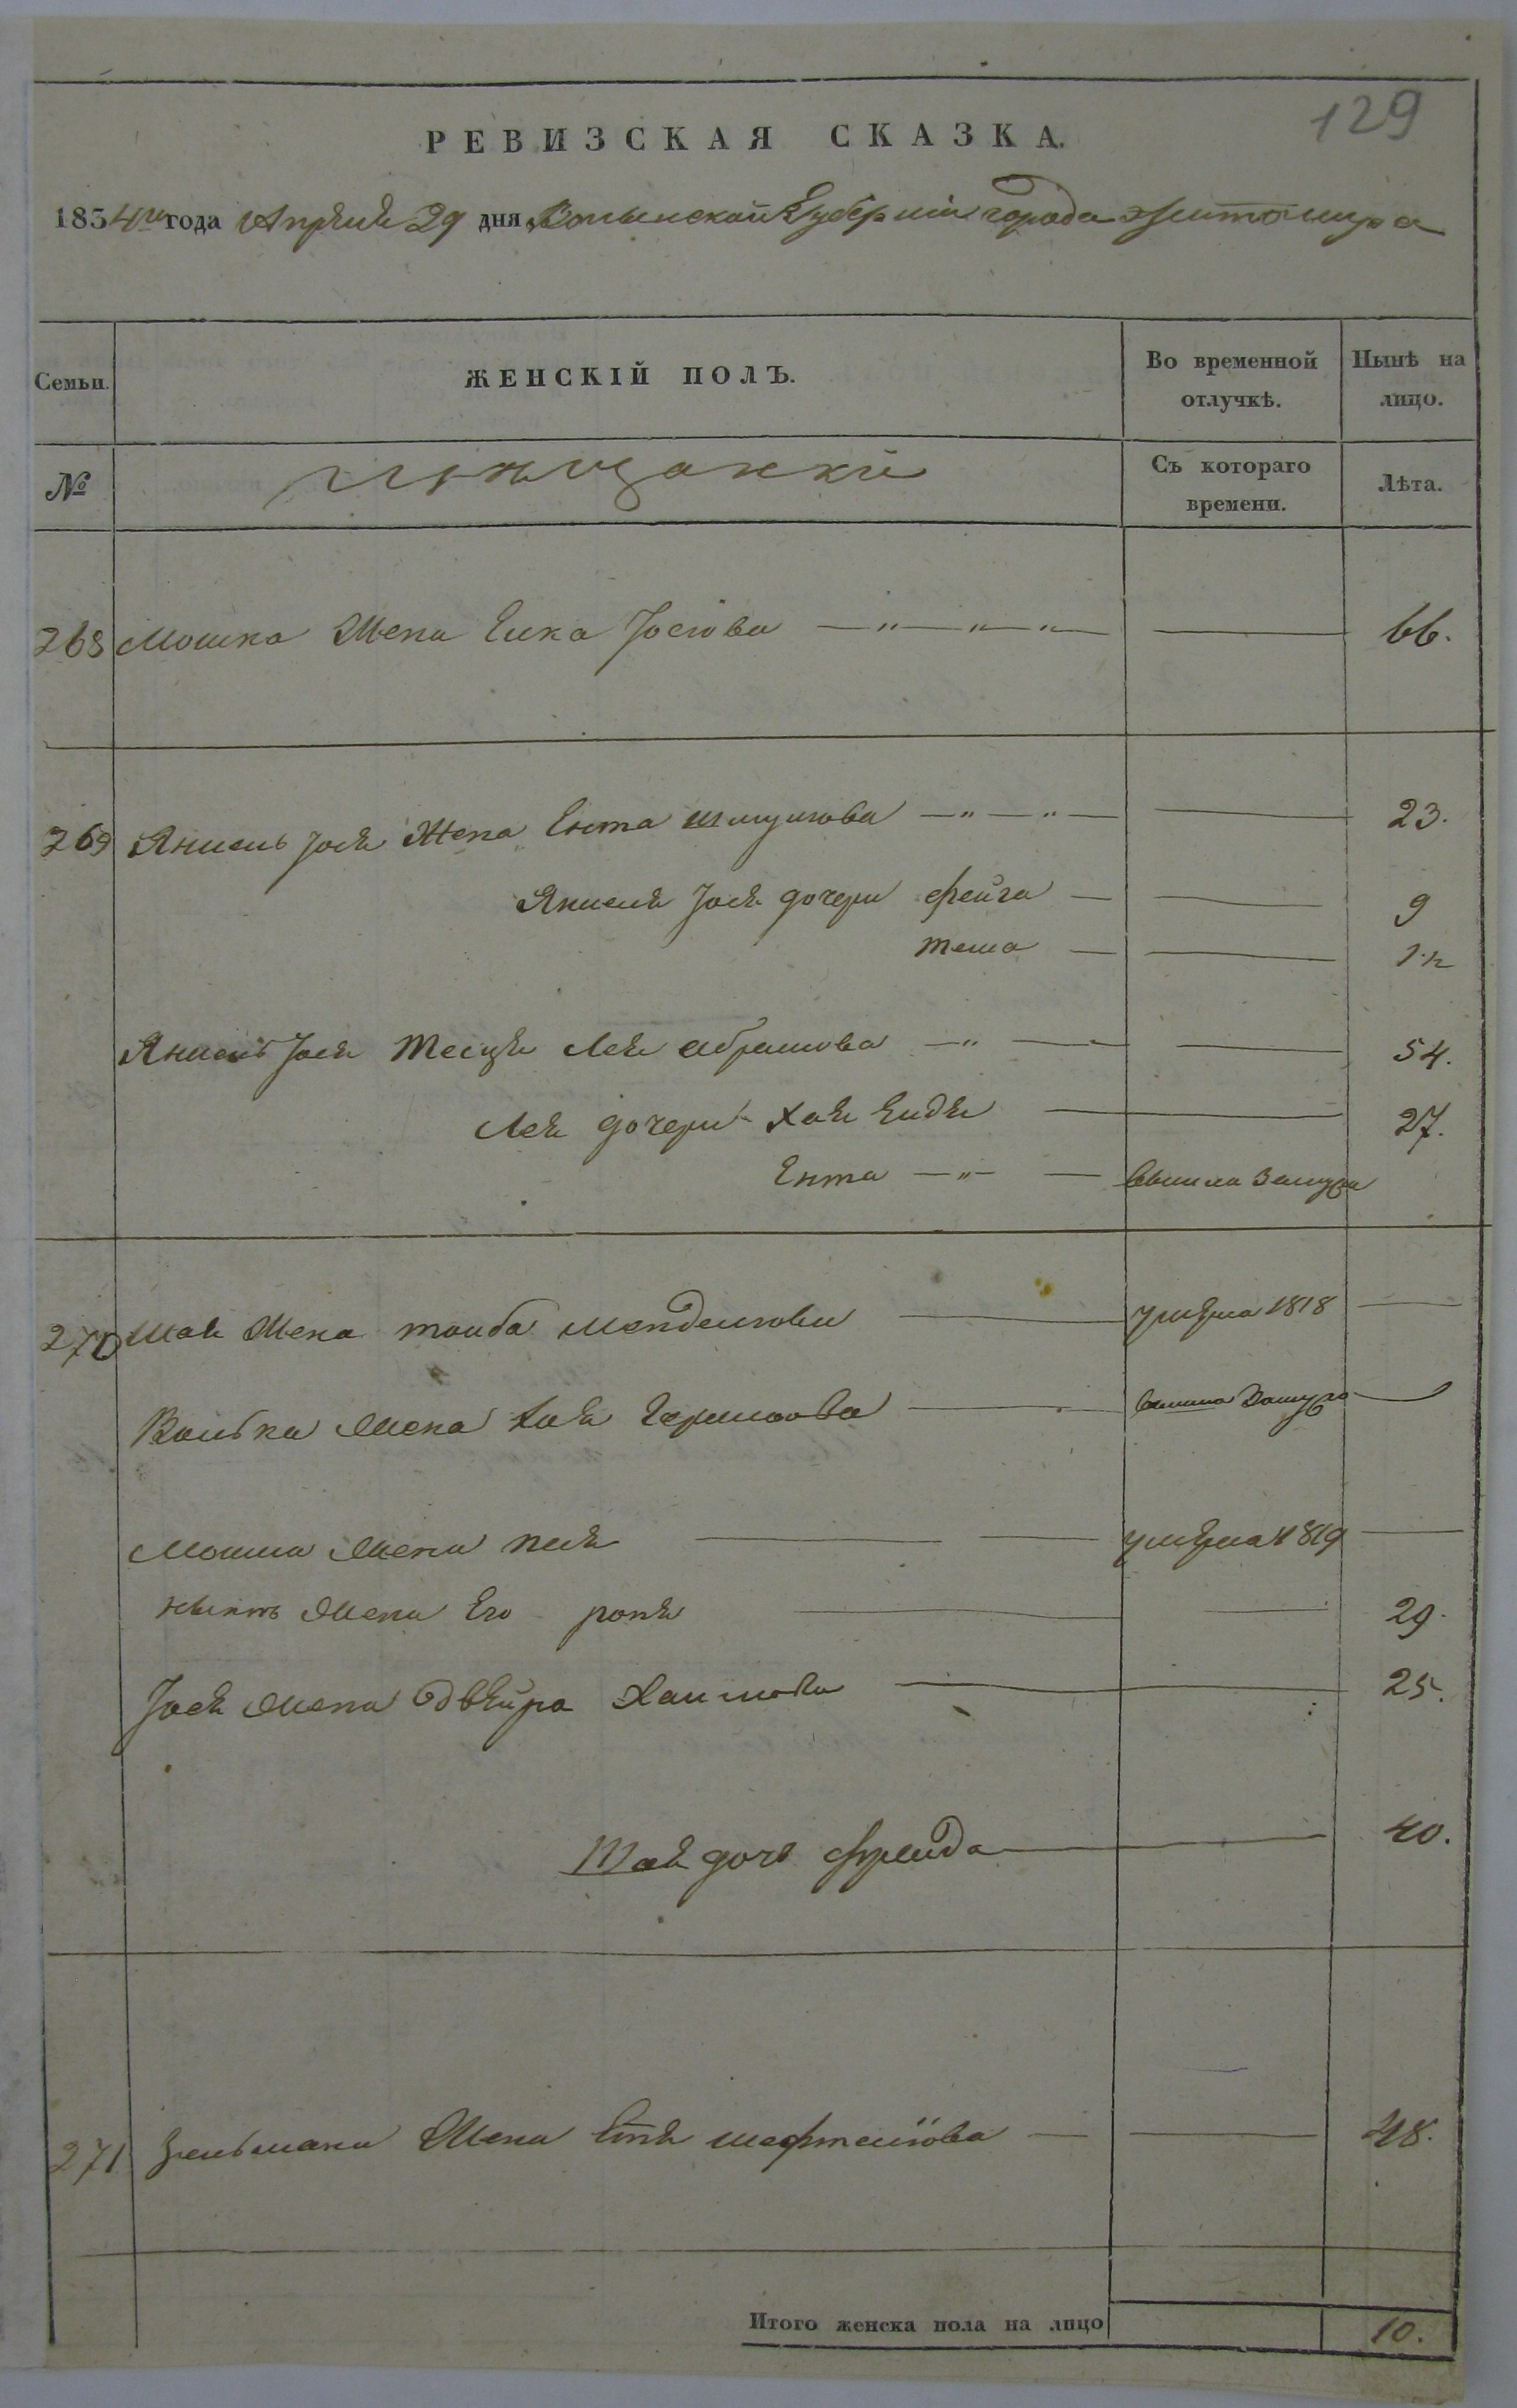 129
РЕВИЗСКАЯ СКАЗКА.
1834го года Апреля 29 дня Волынской Губернии города Житомира
Семьи. ЖЕНСКІЙ ПОЛЪ. Во временной отлучкѣ. Нынѣ на лицо.
№ Мѣщанки Съ котораго времени. Лѣта.
268 Мошка Жена Сика Іосіова — „ — „ — „ — — 66.
269 Янкель Іося Жена Ента шмулова — „ — „ — — 23.
Янкеля Іося дочери фейга — — 9
теша — — 1½
Янкель Іося Теща Лея абрамова — „ — — 54.
Леи дочери Хая Ейдя — — 27.
Ента — „ — — вышла замужъ
270 Шаи Жена тауба менделова — умерла 1818 —
Волька Жена Хая Гершкова — вышла Замужъ —
Мошка Жена песя — — умерла 1819 —
Жена Его рося — — 29.
Іося Жена Двейра Хаимова — — 25.
Шаи дочь фрейда — — 40.
271 Зельмана Жена Етя шефтелiова — — 48.
Итого женска пола на лицо 10.